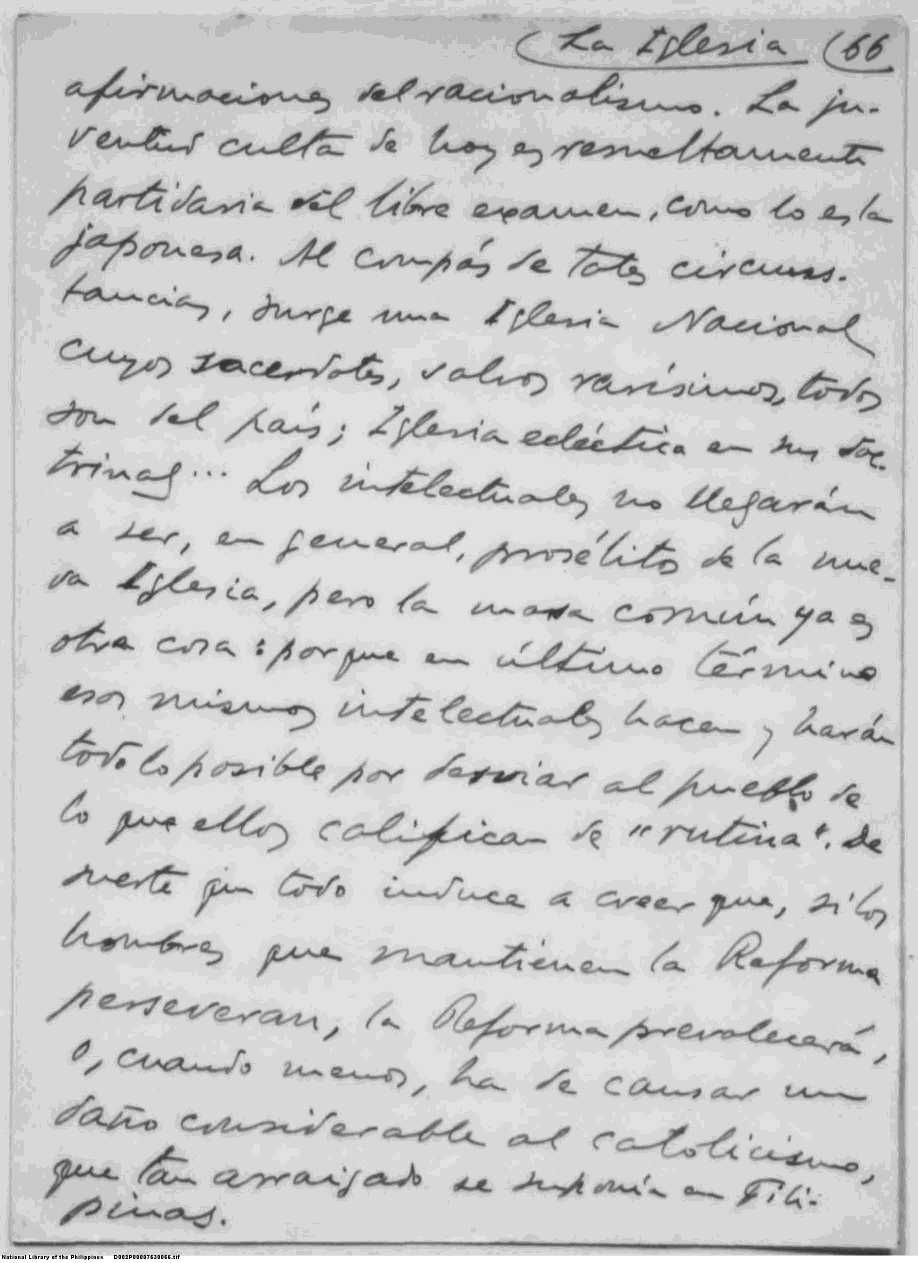 (La Iglesia (66
afirmaciones del racionalismo. La ju-
ventud culta de hoy es resueltamente
partidaria del libre examen, como lo es la
japonesa. Al compás de tales circuns-
tancias, surge una Iglesia Nacional
cuyos sacerdotes, salvos rarísimos, todos
son del país; Iglesia ecléctica en sus doc-
trinas... Los intelectuales no llegarán
a ser, en general, prosélitos de la nue-
va Iglesia, pero la masa común ya es
otra cosa: porque en último término
esos mismos intelectuales hacen y harán
todo lo posible por desviar al pueblo de
lo que ellos califican de "rutina". De
suerte que todo induce a creer que, si los
hombres que mantienen la Reforma
perseveran, la Reforma prevalecerá,
o, cuando menos, ha de causar un
daño considerable al catolicismo,
que tan arraigado se suponía en Fili-
pinas.
National Library of the Philippines D002P00007630066.tif